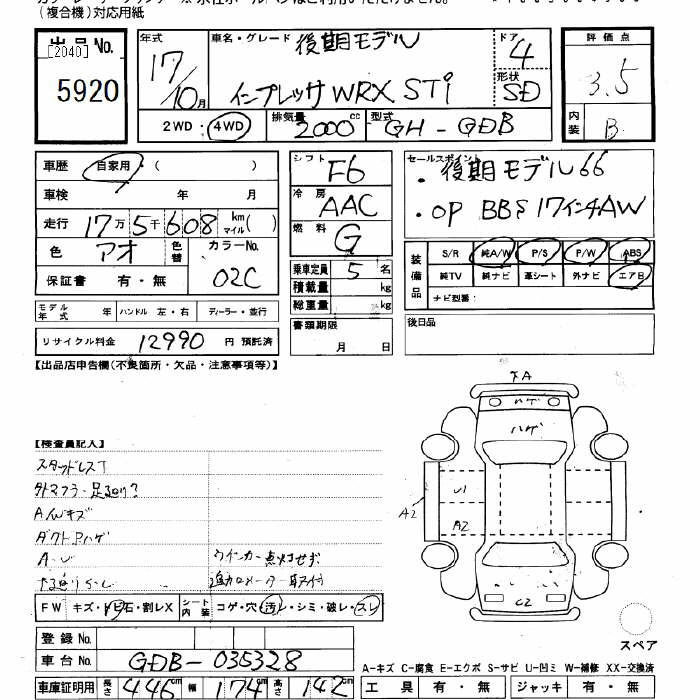 (複合機)対応用紙
出品 No.
[2040]
5920
年式
17/10月
車名・グレード 後期モデル
インプレッサ WRX STi
ドア 4
形状 SD
評価点
3.5
内装 B
2WD・4WD
排気量 2000 cc
型式 GH-GDB
車歴 自家用・( )
車検 年 月
走行 17万5千608 km マイル( )
色 アオ 色替
カラーNo. 02C
保証書 有・無
シフト F6
冷房 AAC
燃料 G
乗車定員 5 名
積載量 kg
総重量 kg
書類期限
月 日
セールスポイント
・後期モデル66
・OP BBS 17インチAW
装備品
S/R 純A/W P/S P/W ABS
純TV 純ナビ 革シート 外ナビ エアB
ナビ型番:
後日品
モデル年式 年 ハンドル 左・右 ディーラー・並行
リサイクル料金 12990 円 預託済
【出品店申告欄(不良箇所・欠品・注意事項等)】
【検査員記入】
スタッドレスT
外マフラー・足廻り?
A/Wキズ
ダクトPハゲ
A-U
ウインカー点灯せず
追加メーター取付
FW キズ・トビ石・割レX
シート内装 コゲ・穴・汚レ・シミ・破レ・スレ
登録 No.
車台 No. GDB-035328
車庫証明用 長さ 446cm 幅 174cm 高さ 142cm
下A
ハゲ
ハゲ
U1
A2
A2
C2
スペア
A-キズ C-腐食 E-エクボ S-サビ U-凹ミ W-補修 XX-交換済
工具 有・無 ジャッキ 有・無